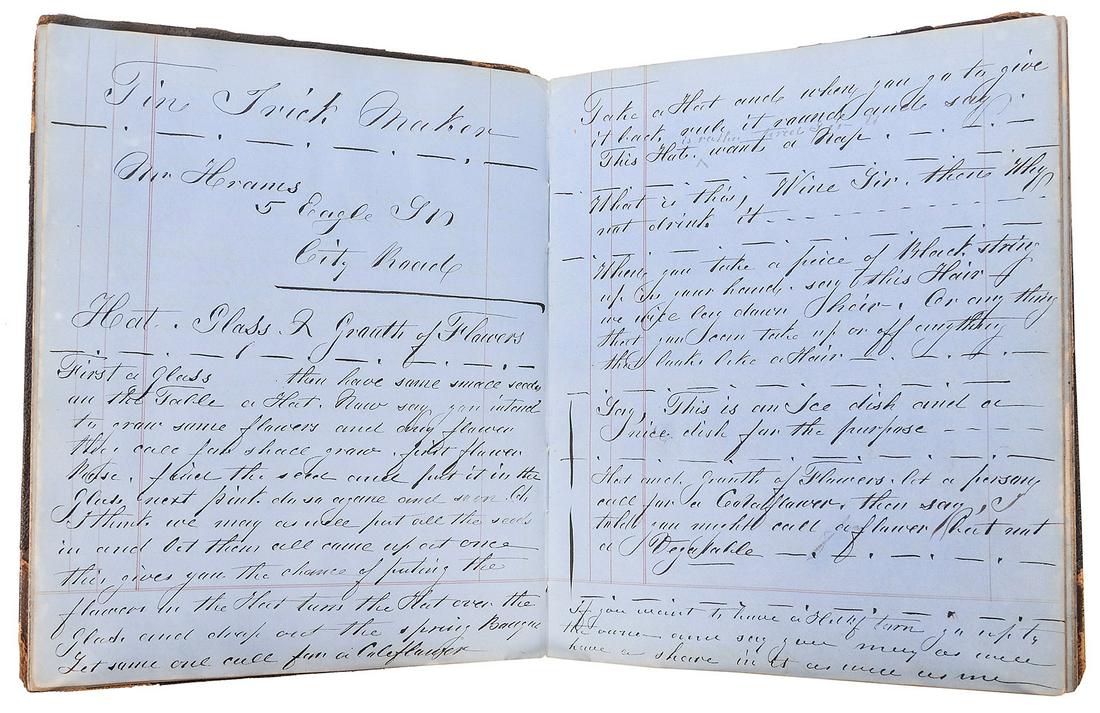 Tin Trick Maker
Mr Hrams
5 Eagle St
City Road
Hat. Glass. & Grauth of Flowers
First a Glass then have some small seeds
on the Table a Hat. Now say you intend
to craw some flowers and any flower
they call for shall grow. first flower
Rose. find the seed and put it in the
Glass next pink do so agane and soon. Oh
I think we may as well put all the seeds
in and let them all come up at once
this gives you the chance of puting the
flowers in the Hat turn the Hat over the
Glass and drop out the spring
Get some one call for a Coloflawer
Take a Hat and when you go to give
it back rub it round and say
is rather tired
This Hat wants a Nap
What is this, Wine Sir. then Why
not drink it
When you take a piece of Black string
up in your hand. say this Hair
we will lay down Their. Or any thing
that you can take up or off anything
that looks like a Hair
Say, This is an Ice dish and a
Nice dish for the purpose
Hat and Grauth of Flowers. let a person
call for a Colaflower then say, I
told you might call a flower but not
a Vegatable
If you want to have a Hat torn go up to
the owner and say you may as well
have a share in it as well as me